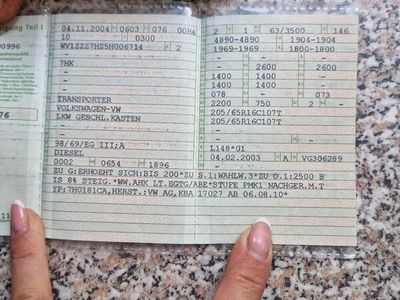 igung Teil I
00996
04.11.2004 0603 076 00H6
10 0300
WV1ZZZ7HZ5H006714 2
-
7HK
-
-
TRANSPORTER
VOLKSWAGEN-VW
LKW GESCHL.KASTEN
-
98/69/EG III;A
DIESEL
0002 0654 1896
2 1 63/3500 146
4890-4890 1904-1904
1969-1969 1800-1800
- -
- 2600 2600
1400 1400 -
1400 1400 -
078 - 073
2200 750 2
205/65R16C107T
205/65R16C107T
-
-
L148*01
04.02.2003 A VG306289
ZU G:ERHOEHT SICH:BIS 200*ZU S.1:WAHLW.3*ZU O.1:2500 B
IS 8% STEIG.*WW.AHK LT.EGTG/ABE*STUFE PMK1 NACHGER.M.T
YP:7H0181CA,HERST.:VW AG,KBA 17027 AB 06.08.10*
76